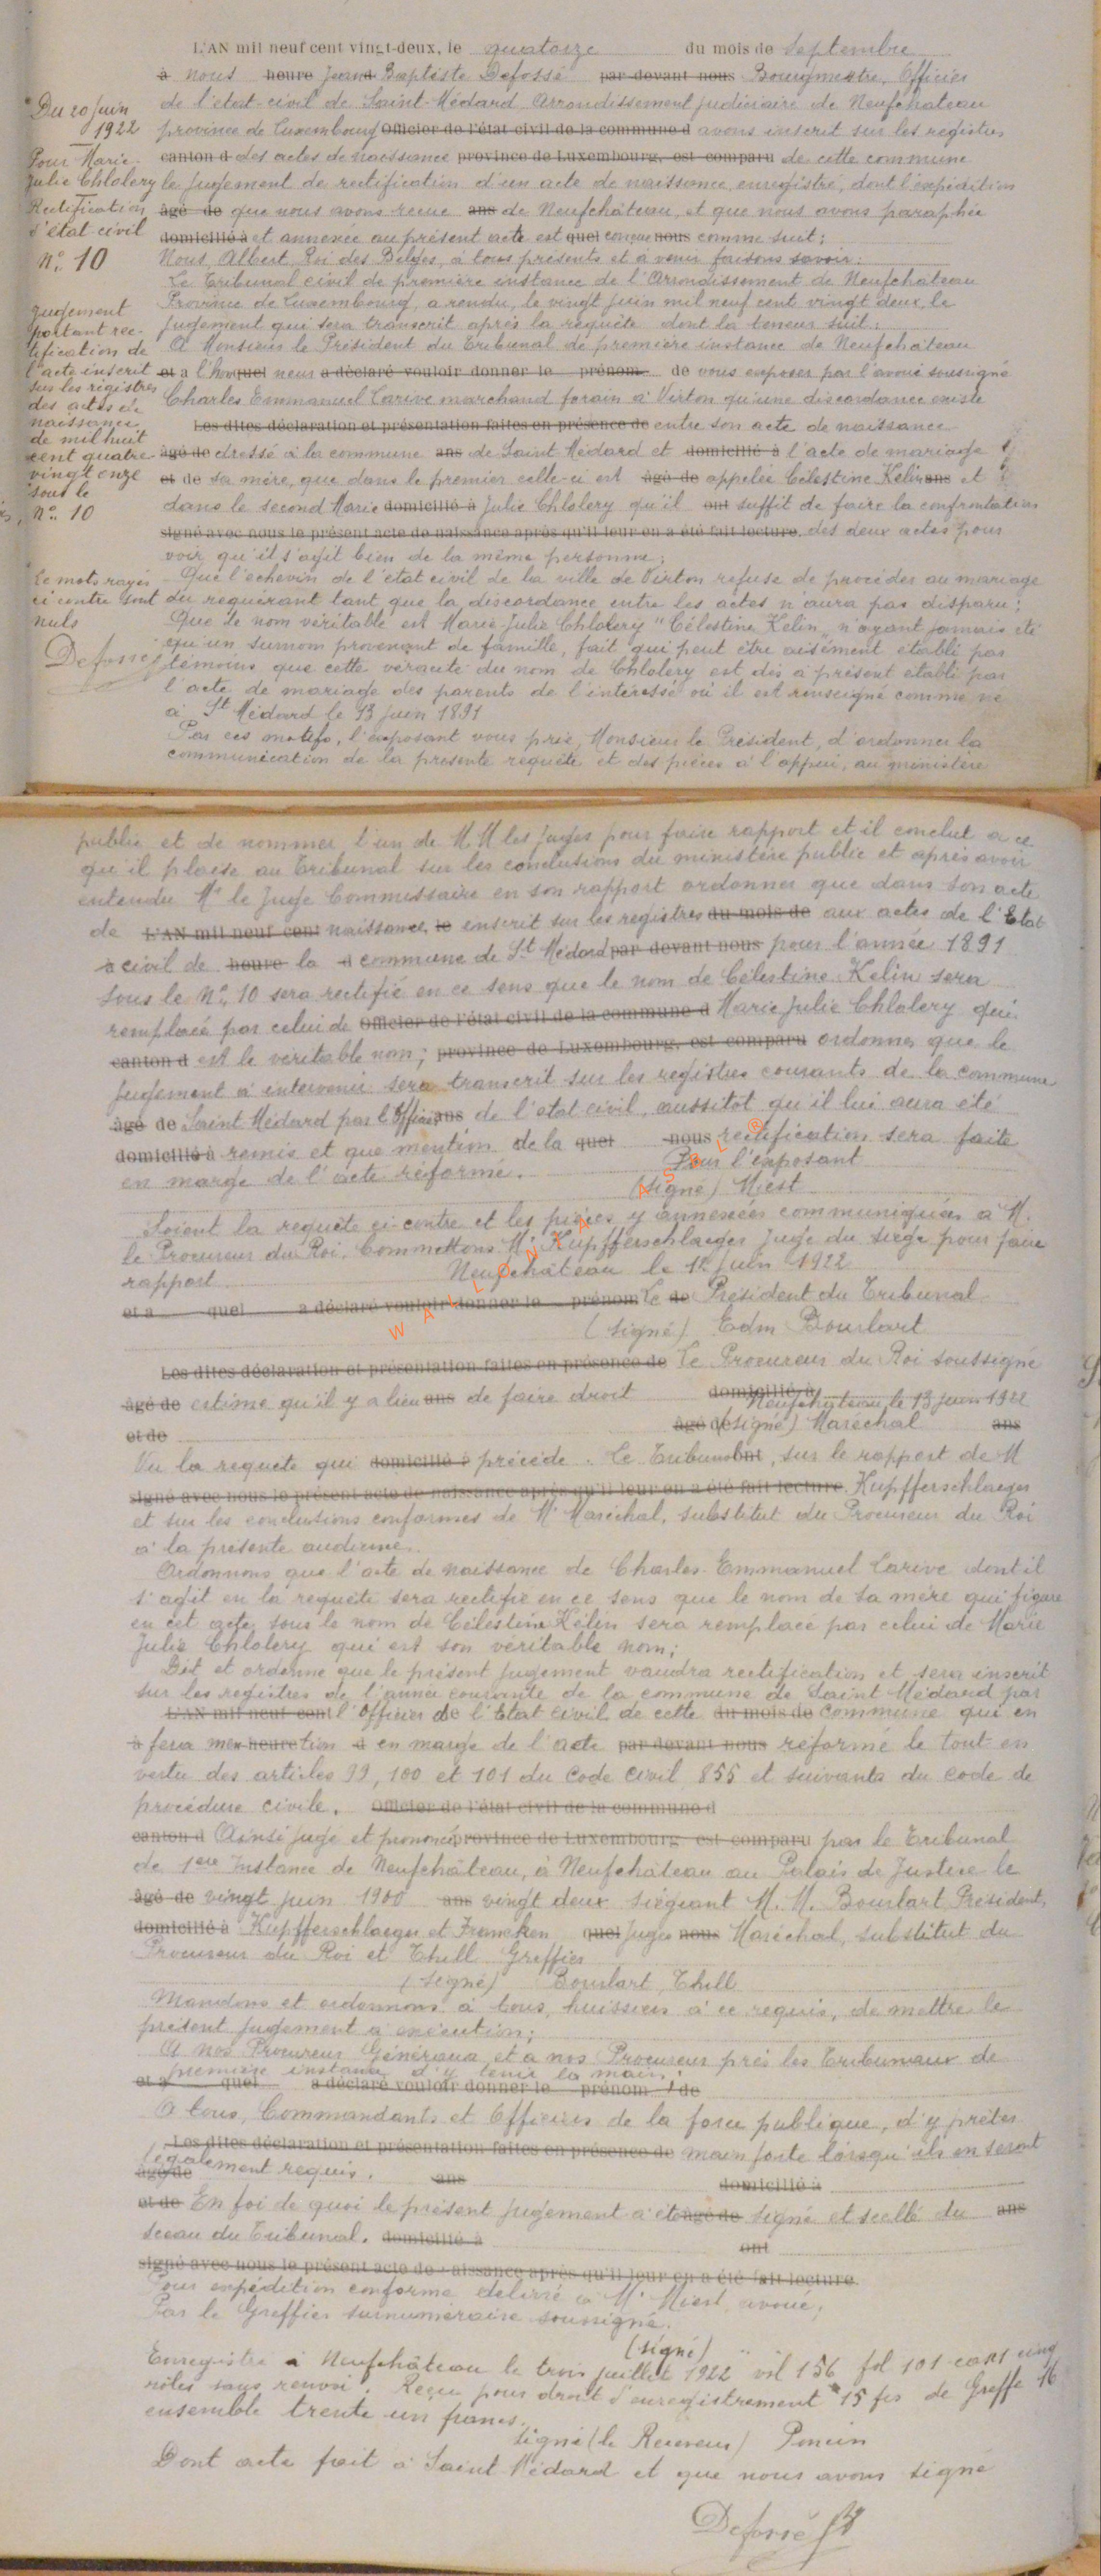 L'AN mil neuf cent vingt-deux, le quatorze du mois de septembre
à nous heure Jean d Baptiste Defossé par devant nous Bourgmestre, Officier
Du 20 juin
1922
de l'état-civil de Saint-Médard, Arrondissement judiciaire de Neufchâteau
province de Luxembourg Officier de l'état civil de la commune d avons inscrit sur les registres
Pour Marie-
Julie Chlolery
Rectification
d'état-civil
N° 10
canton d des actes de naissance province de Luxembourg, est comparu de cette commune
le jugement de rectification d'un acte de naissance enregistré, dont l'expédition
âgé de que nous avons reçue ans de Neufchâteau, et que nous avons paraphée
domicilié à et annexée au présent acte est quel conçue nous comme suit :
Nous, Albert, Roi des Belges, à tous présents et à venir faisons savoir :
Le Tribunal civil de première instance de l'Arrondissement de Neufchâteau
Province de Luxembourg, a rendu, le vingt juin mil neuf cent vingt deux, le
jugement qui sera transcrit après la requête dont la teneur suit :
Jugement
portant rec-
tification de
l'acte inscrit
sur les registres
des actes de
naissance
de mil huit
cent quatre-
vingt onze
sous le
N° 10
A Monsieur le Président du Tribunal de première instance de Neufchâteau
et a l'hon quel neur a déclaré vouloir donner le prénom de vous exposer par l'avoué soussigné
Charles Emmanuel Carive marchand forain à Virton qu'une discordance existe
Les dites déclaration et présentation faites en présence de entre son acte de naissance
âgé de dressé à la commune ans de Saint Médard et domicilié à l'acte de mariage
et de de sa mère, que dans le premier celle-ci est âgé de appelée Célestine Kelin ans et
dans le second Marie domicilié à Julie Chlolery qu'il ont suffit de faire la confrontation
signé avec nous le présent acte de naissance après qu'il leur en a été fait lecture. des deux actes pour
voir qu'il s'agit bien de la même personne ;
Le mots rayés
ci contre sont
nuls
Defossé
Que l'échevin de l'état civil de la ville de Virton refuse de procéder au mariage
du requérant tant que la discordance entre les actes n'aura pas disparu ;
Que le nom véritable est Marie Julie Chlolery "Célestine Kelin" n'ayant jamais été
qu'un surnom provenant de famille, fait qui peut être aisément établi par
témoins que cette véracité du nom de Chlolery est dès à présent établi par
l'acte de mariage des parents de l'intéressé où il est renseigné comme né
à St Médard le 13 juin 1891
Par ces motifs, l'exposant vous prie, Monsieur le Président, d'ordonner la
communication de la présente requête et des pièces à l'appui, au ministère
public et de nommer l'un de M.M les juges pour faire rapport et il conclut à ce
qu'il plaise au Tribunal sur les conclusions du ministère public et après avoir
entendu Mr le Juge Commissaire en son rapport ordonner que dans son acte
de L'AN mil neuf cent naissance, le inscrit sur les registres du mois de aux actes de l'Etat
à civil de heure la d commune de St Médard par devant nous pour l'année 1891
sous le N° 10 sera rectifié en ce sens que le nom de Célestine Kelin sera
remplacé par celui de Officier de l'état civil de la commune d Marie Julie Chlolery qui
canton d est le véritable nom ; province de Luxembourg, est comparu ordonner que le
jugement à intervenir sera transcrit sur les registres courants de la commune
âgé de Saint Médard par l'Officier ans de l'état civil, aussitôt qu'il lui aura été
domicilié à remis et que mention de la quel nous rectification sera faite
en marge de l'acte réformé. Pour l'exposant
(signé) Miest
Soient la requête ci-contre et les pièces y annexées communiquées à M.
le Procureur du Roi. Commettons Mr Kupfferschlaeger Juge du siège pour faire
rapport Neufchâteau le 12 Juin 1922
et a quel a déclaré vouloir donner le prénom Le de Président du Tribunal
(signé) Edm Bourlart
WALLONIA ASBL ®
Les dites déclaration et présentation faites en présence de Le Procureur du Roi soussigné
âgé de estime qu'il y a lieu ans de faire droit domicilié à
Neufchâteau, le 13 juin 1922
et de âgé de (signé) Maréchal ans
Vu la requête qui domicilié à précède. Le Tribunal ont, sur le rapport de M
signé avec nous le présent acte de naissance après qu'il leur en a été fait lecture. Kupfferschlaeger
et sur les conclusions conformes de Mr Maréchal, substitut du Procureur du Roi
à la présente audience.
Ordonnons que l'acte de naissance de Charles-Emmanuel Carive dont il
s'agit en la requête sera rectifié en ce sens que le nom de sa mère qui figure
en cet acte sous le nom de Célestine Kélin sera remplacé par celui de Marie
Julie Chlolery qui est son véritable nom ;
Dit et ordonne que le présent jugement vaudra rectification et sera inscrit
sur les registres de l'année courante de la commune de Saint Médard par
L'AN mil neuf cent l'Officier de l'Etat civil de cette du mois de commune qui en
à fera men heure tion d en marge de l'acte par devant nous réformé le tout en
vertu des articles 99, 100 et 101 du Code Civil 855 et suivants du code de
procédure civile. Officier de l'état civil de la commune d
canton d Ainsi jugé et prononcé province de Luxembourg est comparu par le Tribunal
de 1ère Instance de Neufchâteau, à Neufchâteau au Palais de Justice le
âgé de vingt juin 1900 ans vingt deux siégeant M. M. Bourlart Président,
domicilié à Kupfferschlaeger et Francken quel Juges nous Maréchal, substitut du
Procureur du Roi et Thill Greffier
(signé) Bourlart, Thill
Mandons et ordonnons à tous huissiers à ce requis, de mettre le
présent jugement à exécution ;
A nos Procureurs Généraux et à nos Procureurs près les Tribunaux de
première instance d'y tenir la main ;
et a quel a déclaré vouloir donner le prénom de
A tous, Commandants et Officiers de la force publique, d'y prêter
Les dites déclaration et présentation faites en présence de main forte lorsqu'ils en seront
légalement requis.
âgé de ans domicilié à
et de En foi de quoi le présent jugement a été âgé de signé et scellé du ans
sceau du Tribunal. domicilié à ont
signé avec nous le présent acte de naissance après qu'il leur en a été fait lecture.
Pour expédition conforme délivré à Mr Miest, avoué,
Par le Greffier surnuméraire soussigné.
(signé)
Enregistré à Neufchâteau le trois juillet 1922 vol 156 fol 101 case cinq
rôles sans renvoi. Reçu pour droit d'enregistrement 15 frs de Greffe 16
ensemble trente un francs.
signé (le Receveur) Poncin
Dont acte fait à Saint Médard et que nous avons signé
Defossé